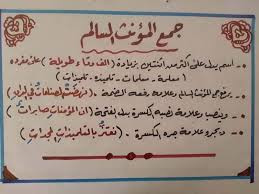 جمع المؤنث السالم
- اسم يدل على أكثر من اثنتين بزيادة (ألف و تاء طويلة) على مفرده
(معلمة - معلمات - تلميذة - تلميذات)
- يرفع جمع المؤنث السالم و علامة رفعه الضمة .
- و ينصب و علامة نصبه الكسرة بدل الفتحة (إن المؤمنات صابرات)
- و يجر و علامة جره الكسرة . (نعتز بالتلميذات المجدات)